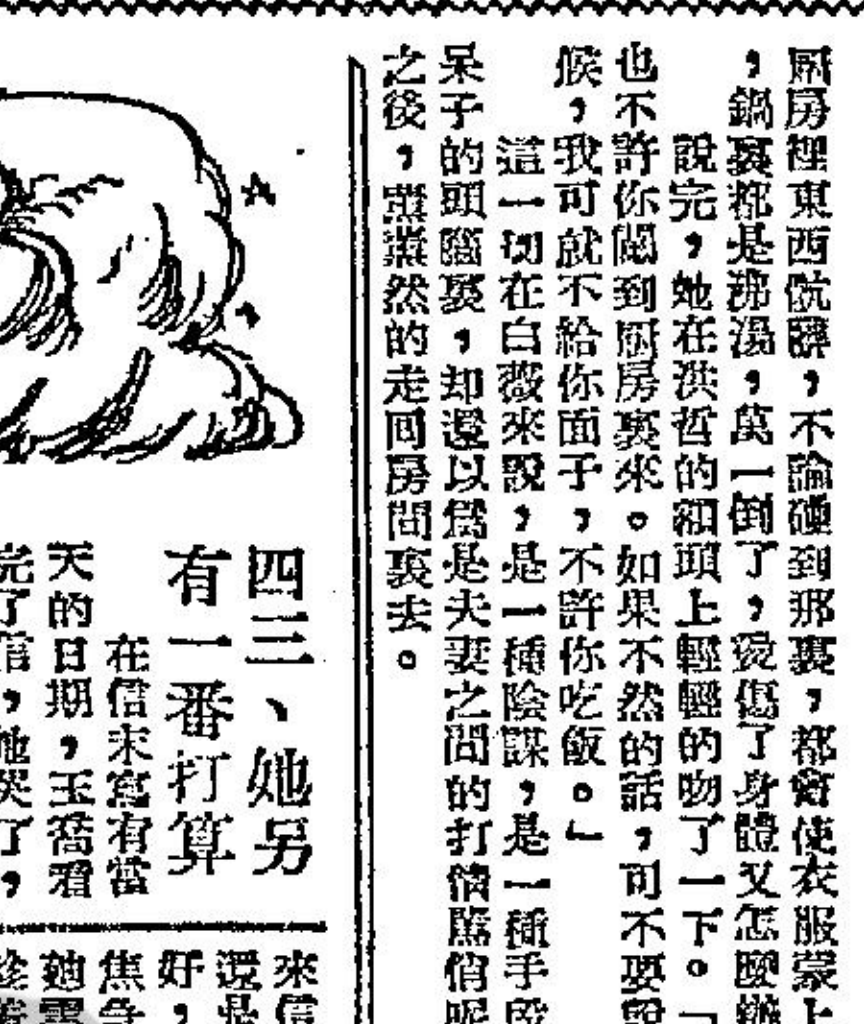 厨房裡東西骯髒，不論碰到那裏，都會使衣服蒙上
，鍋裏都是沸湯，萬一倒了，燙傷了身體又怎麼辦
說完，她在洪哲的額頭上輕輕的吻了一下。「
也不許你闖到厨房裏來。如果不然的話，可不要說
候，我可就不給你面子，不許你吃飯。」
這一切在白薇來說，是一種陰謀，是一種手段
呆子的頭腦裏，却還以爲是夫妻之間的打情罵俏呢
之後，燕燕然的走回房間裏去。
四三、她另
有一番打算
在信末寫有當
天的日期，玉喬看
完了信，她哭了，
來信
還是
好，
焦急
她需